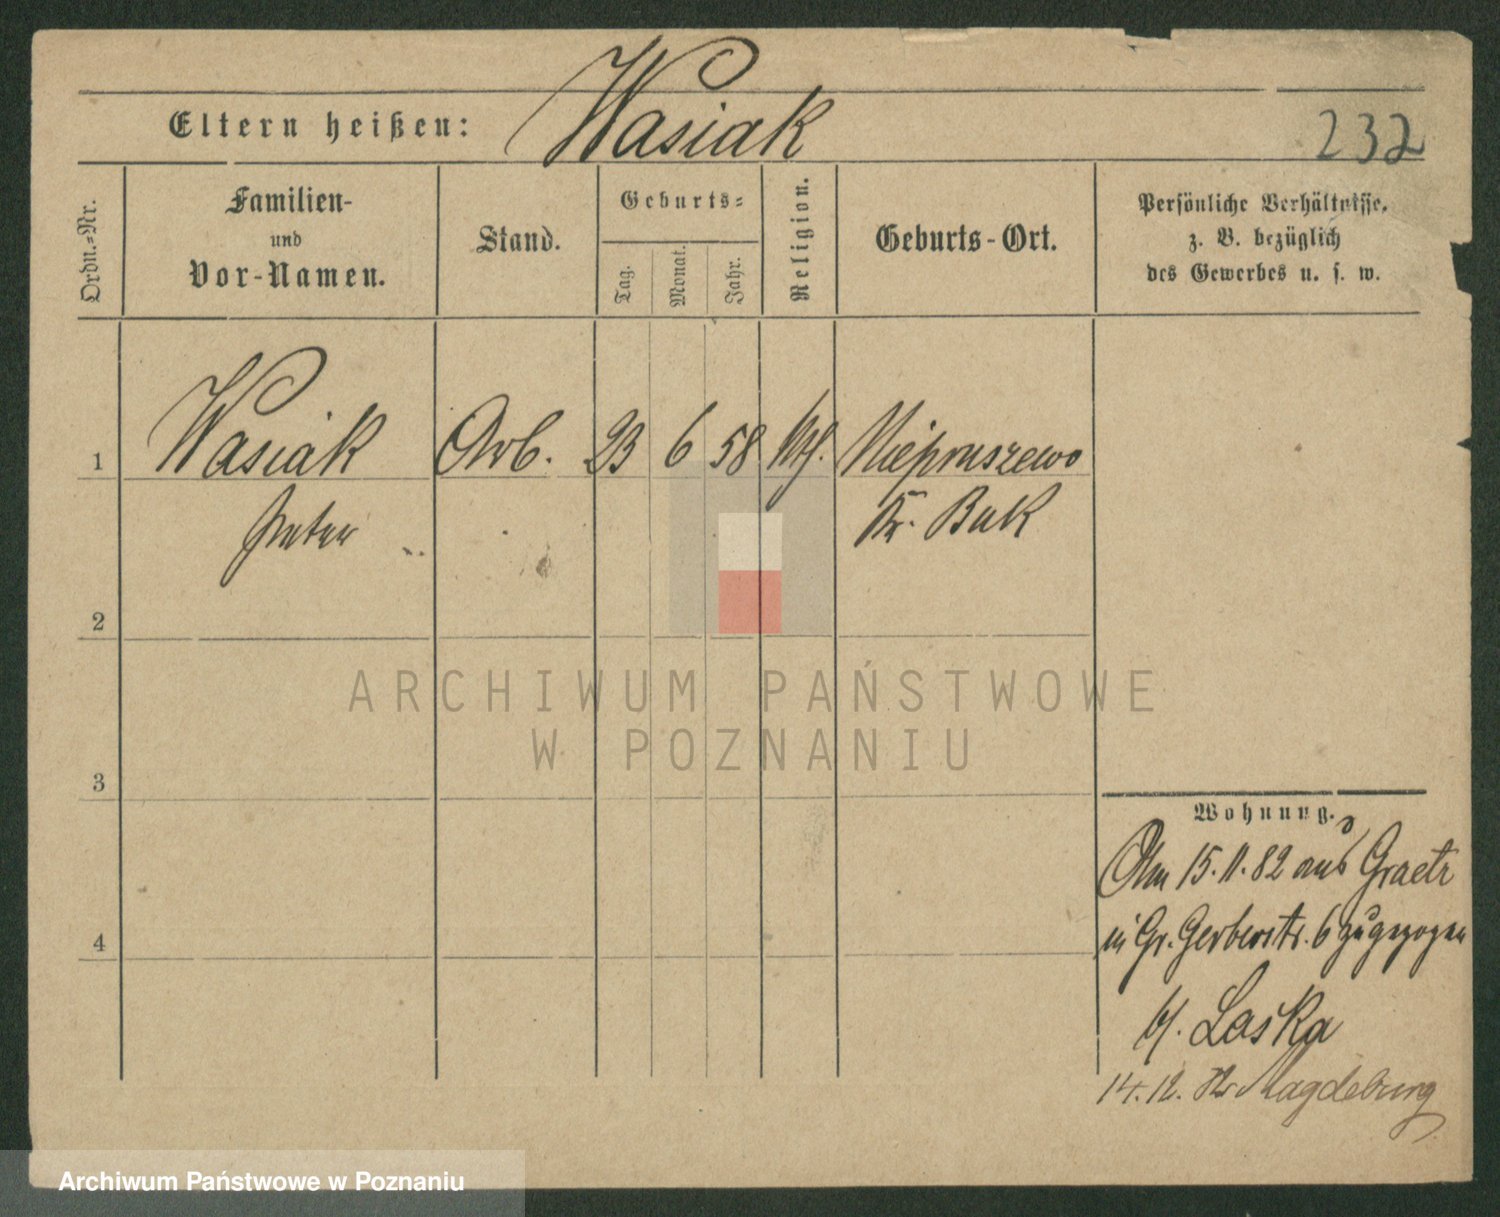 Eltern heißen: Wasiak
232
Ordn.-Nr.
Familien-
und
Vor-Namen.
Stand.
Geburts-
Tag.
Monat.
Jahr.
Religion.
Geburts-Ort.
Persönliche Verhältnisse,
z. B. bezüglich
des Gewerbes u. s. w.
1 Wasiak Arb. 23 6 58 kth. Niepruszewo
Peter Kr. Buk
2
3
4
ARCHIWUM PAŃSTWOWE
W POZNANIU
Wohnung.
Am 15.11.82 aus Graetz
in Gr. Gerberstr. 6 zugezogen
b/. Laska
14.12. Magdeburg
Archiwum Państwowe w Poznaniu